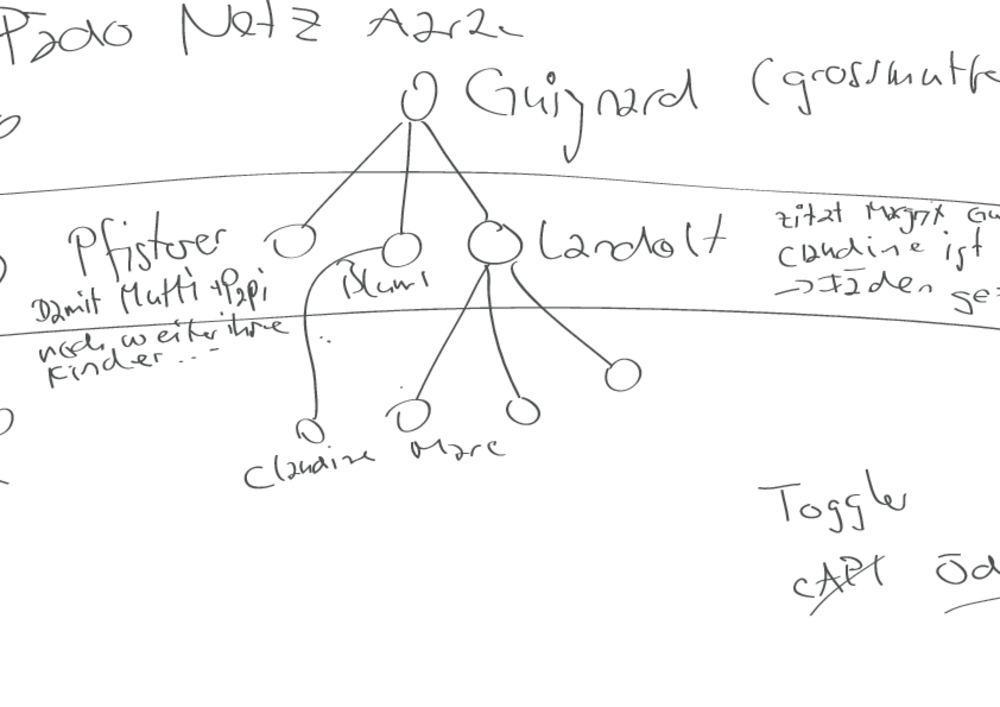 Pädo Netz Aarau
Guignard (grossmutte
Pfisterer
Landolt
Blumi
Damit Mutti + Papi
noch weiter ihre
Kinder...
zitat Margrit Gu
Claudine ist
→ Fäden ge
Claudine Marc
Toggle
CAPT Öd